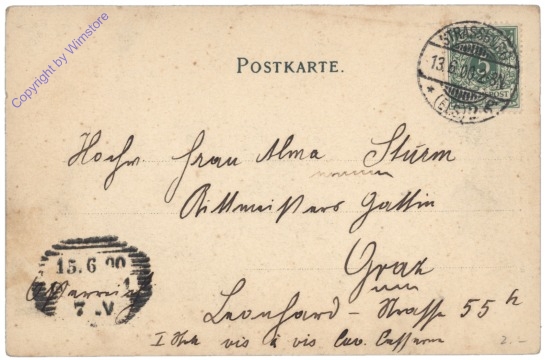 Copyright by Wimstore
POSTKARTE.
STRASSBURG
13.6.00.2-3N
(ELS.)
5
POST
Hochw. Frau Alma Sturm
Rittmeisters Gattin
Graz
Leonhard-Strasse 55
15.6.00
Österreich
7.V
I Stck vis à vis Cav. Casserne
2.-